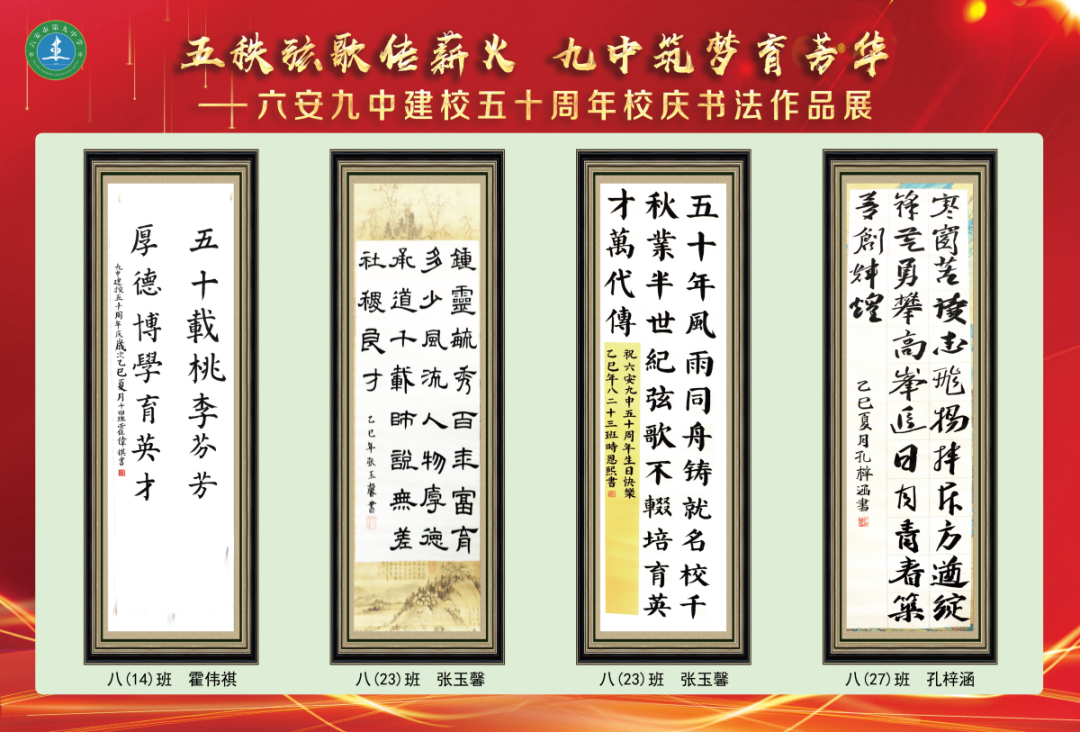 六安市第九中学
五秩弦歌传薪火 九中筑梦育芳华
——六安九中建校五十周年校庆书法作品展
五十載桃李芬芳
厚德博學育英才
九中建校五十周年庆歲次乙巳夏月十四班霍偉祺書
八(14)班 霍伟祺
鍾靈毓秀百年富育
多少風流人物厚德
承道千載師說無差
社稷良才
乙巳年張玉馨書
八(23)班 张玉馨
五十年風雨同舟铸就名校千
秋業半世紀弦歌不輟培育英
才萬代傳
祝六安九中五十周年生日快樂
乙巳年八二十三班時恩熙書
八(23)班 张玉馨
寒窗苦读志飛揚斥方遒綻
锋芒勇攀高峯追日月青春築
創輝煌
乙巳夏月孔梓涵書
八(27)班 孔梓涵